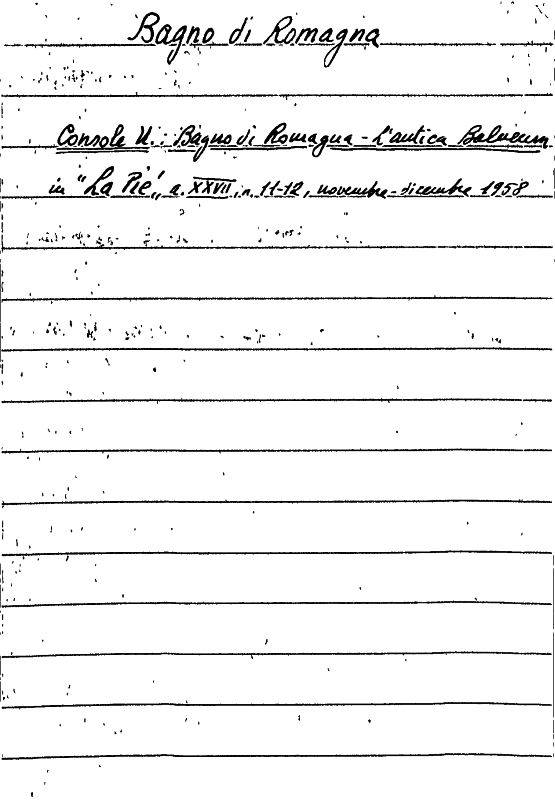 Bagno di Romagna
Console U.: Bagno di Romagna - L'antica Balneum
in "La Piè", a. XXVII, n. 11-12, novembre-dicembre 1958